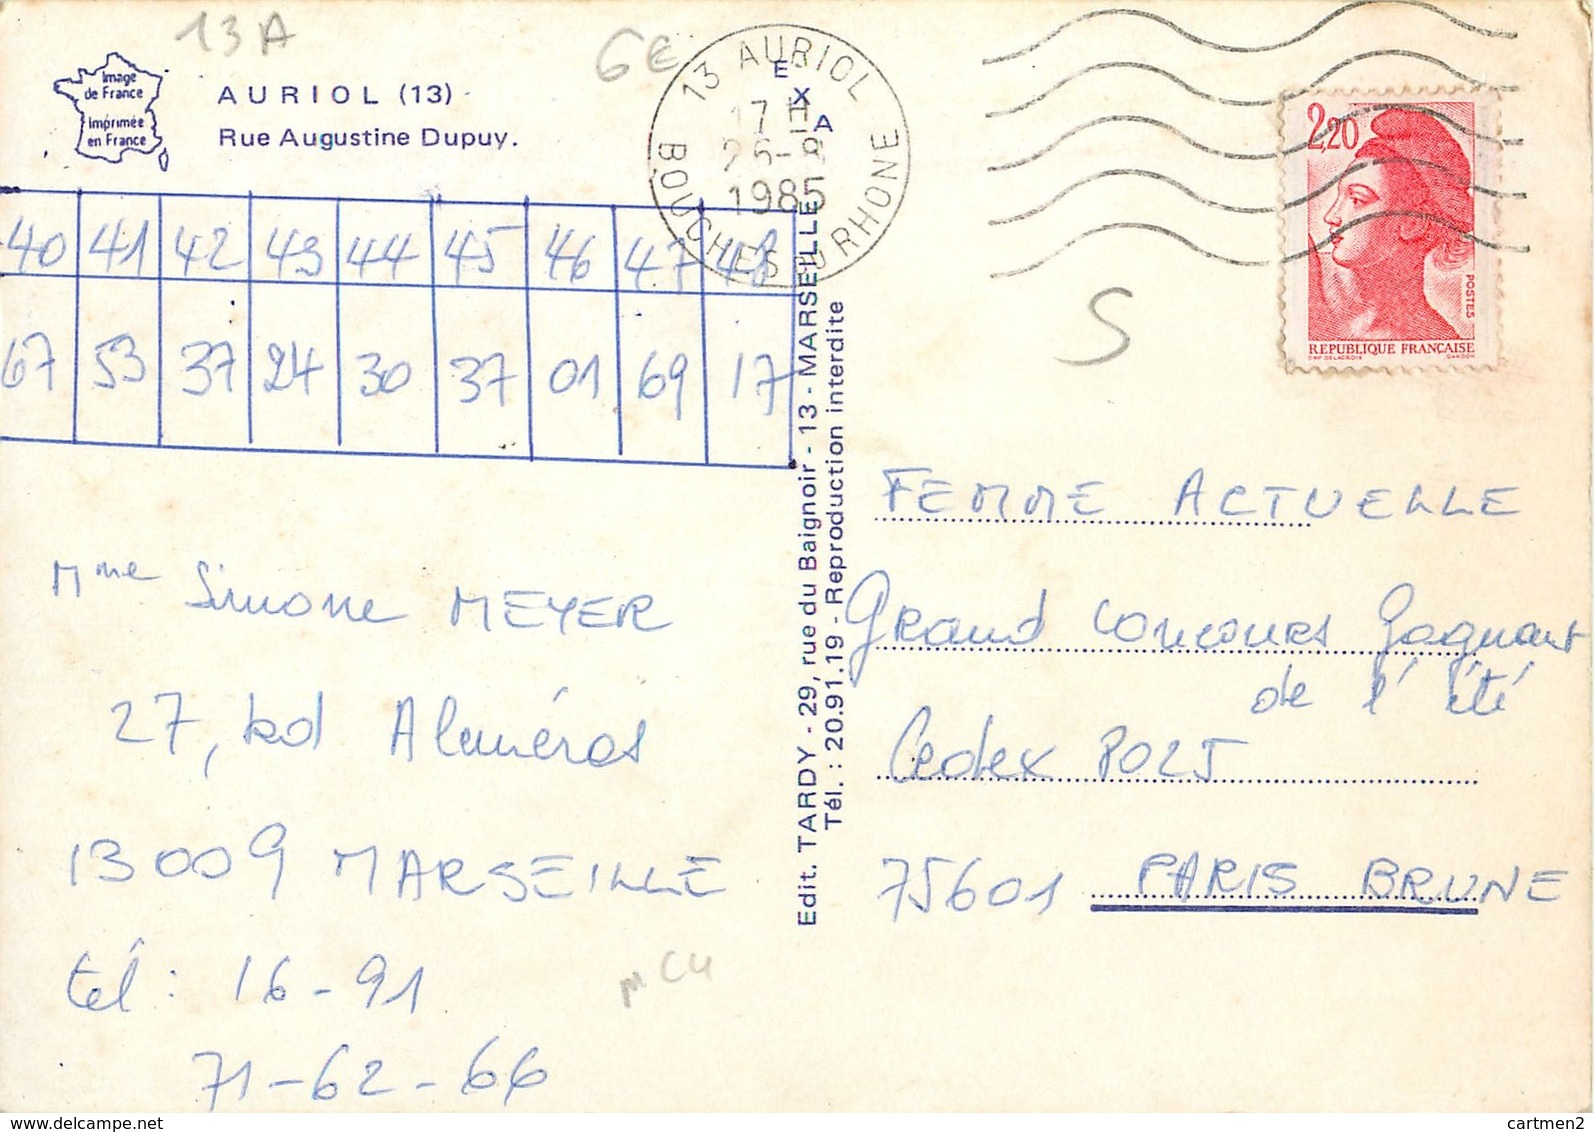 13A
6€
Image
de France
Imprimée
en France
AURIOL (13)
Rue Augustine Dupuy.
13 AURIOL
17 H
1985
BOUCHES DU RHONE
EXA
2,20
POSTES
REPUBLIQUE FRANÇAISE
40 41 42 43 44 45 46 47 48
67 53 37 24 30 37 01 69 17
S
Edit. TARDY - 29, rue du Baignoir - 13 - MARSEILLE
Tél. : 20.91.19 - Reproduction interdite
Mme Simone MEYER
27, bd Alméras
13009 MARSEILLE
tél : 16-91
71-62-66
FEMME ACTUELLE
Grand concours Gagnant
de l'été
Cedex P025
75601 PARIS BRUNE
cartmen2